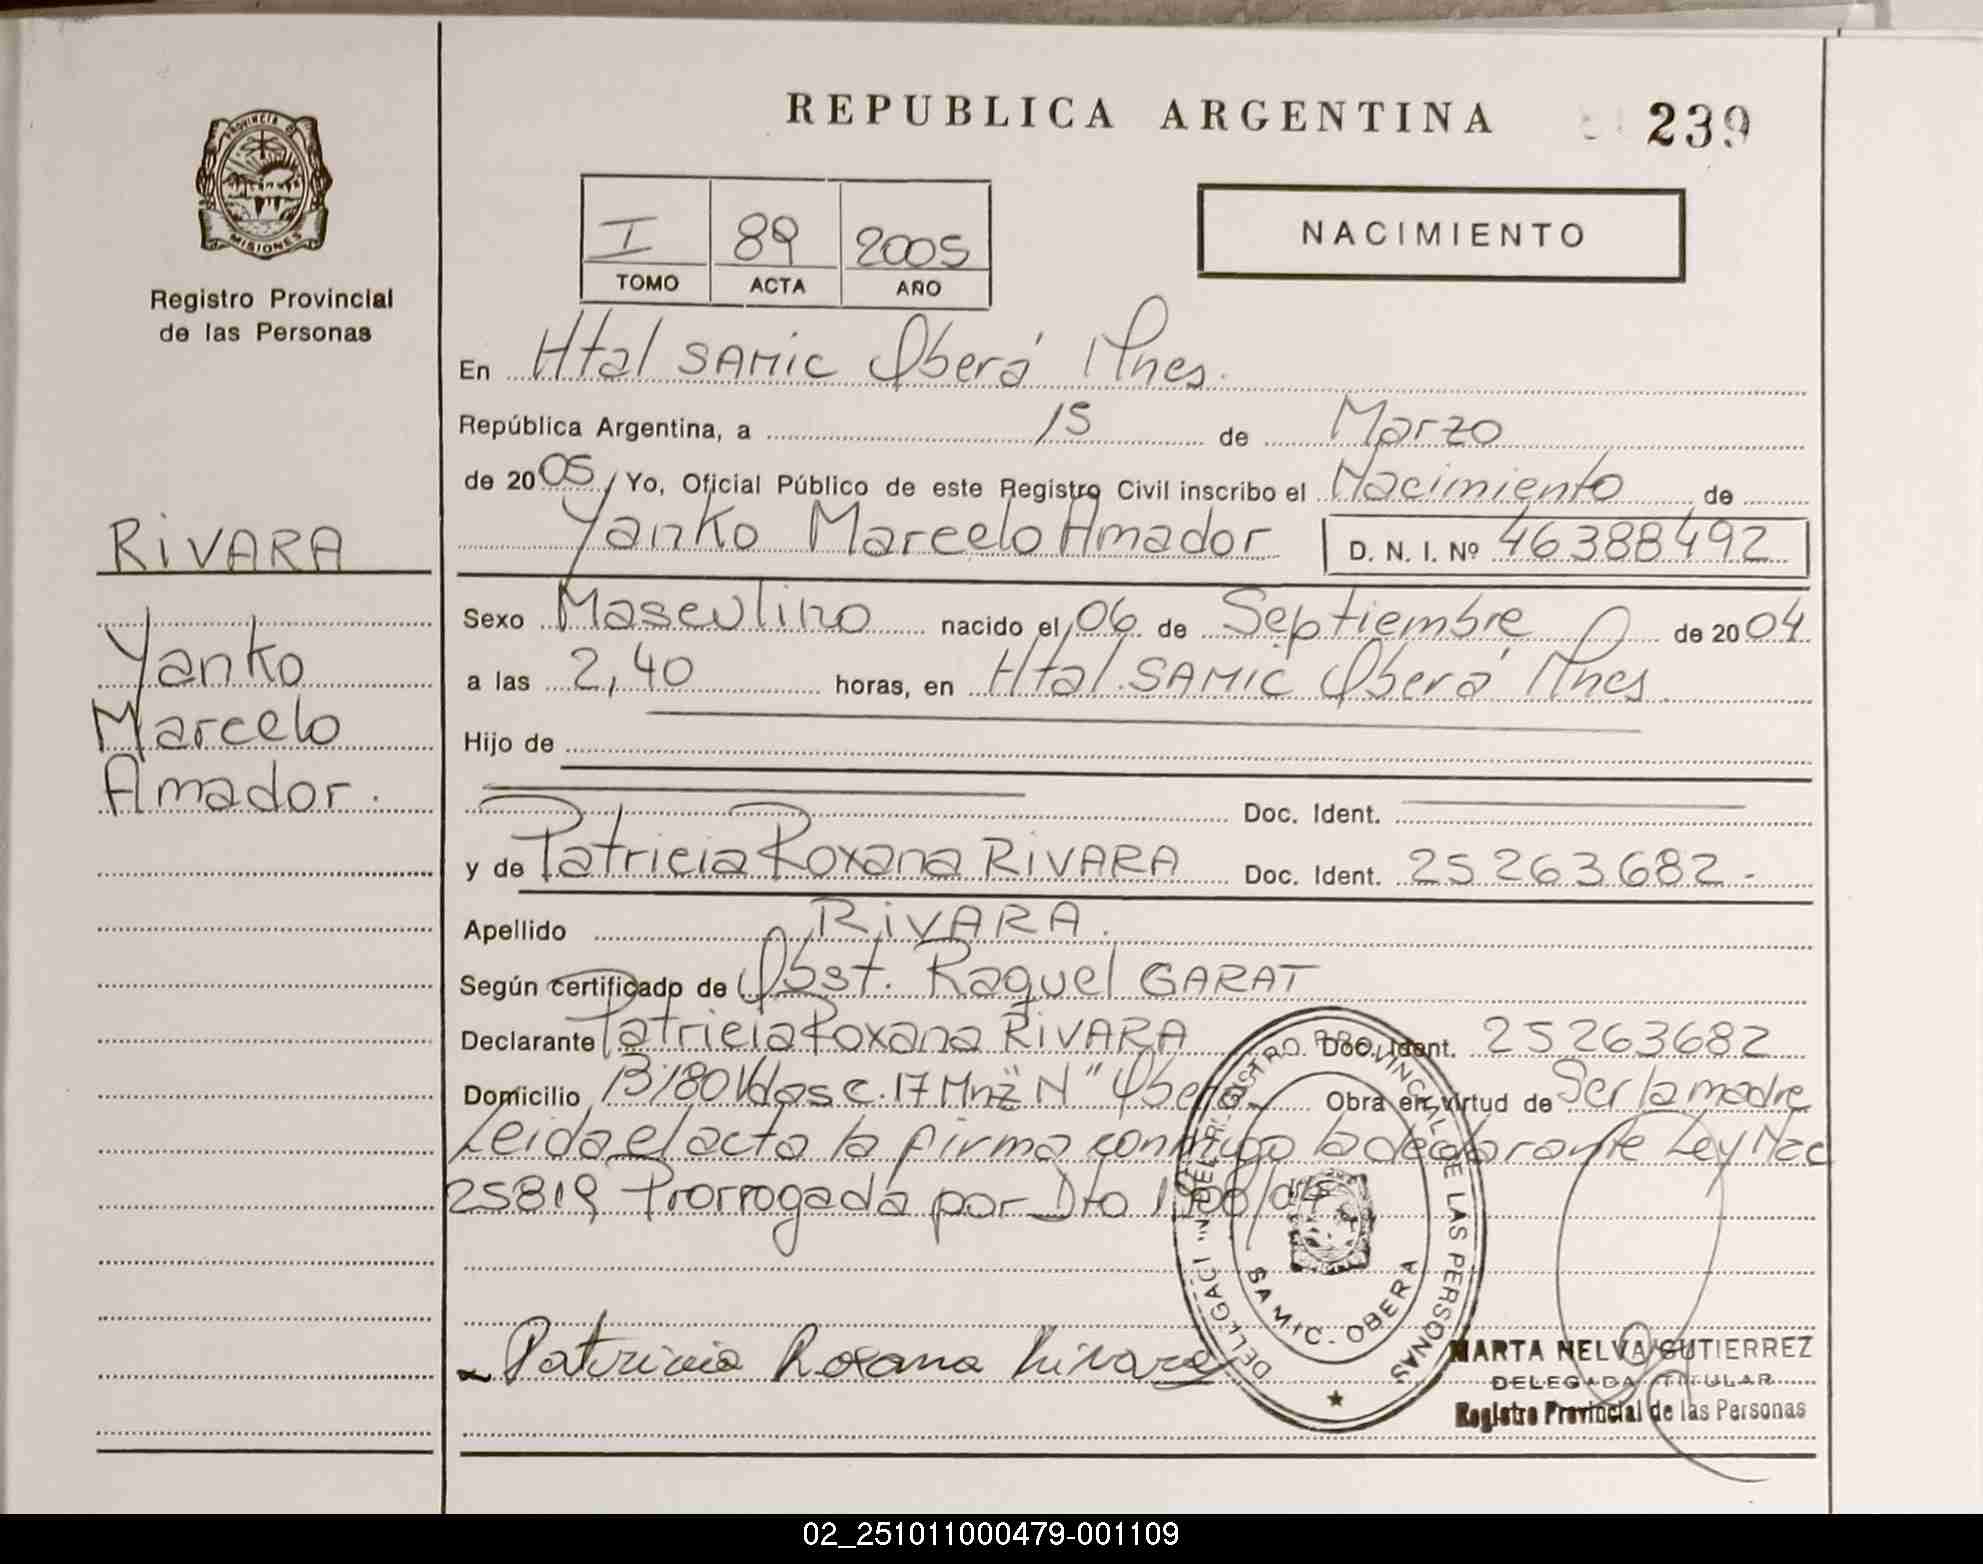 REPUBLICA ARGENTINA
239
PROVINCIA DE
MISIONES
Registro Provincial
de las Personas
I 89 2005
TOMO ACTA AÑO
NACIMIENTO
En Htal SAMIC Oberá Mnes.
República Argentina, a 15 de Marzo
de 2005, Yo, Oficial Público de este Registro Civil inscribo el Nacimiento de
Yanko Marcelo Amador D. N. I. Nº 46388492
RIVARA
Yanko
Marcelo
Amador.
Sexo Masculino nacido el 06 de Septiembre de 2004
a las 2,40 horas, en Htal. SAMIC Oberá Mnes.
Hijo de
Doc. Ident.
y de Patricia Roxana RIVARA Doc. Ident. 25263682.-
Apellido RIVARA.
Según certificado de Obst. Raquel GARAT
Declarante Patricia Roxana RIVARA Doc. Ident. 25263682
Domicilio Bº 180 Vdas C. 17 Mnz "N" Oberá. Obra en virtud de Ser la madre
Leida el acta la firma conmigo la declarante Ley Nac
25819 Prorrogada por Dto
DELEGACI REGISTRO PROVINCIAL DE LAS PERSONAS
SAMIC - OBERA
Patricia Roxana Rivara
MARTA NELVA GUTIERREZ
DELEGADA TITULAR
Registro Provincial de las Personas
02_251011000479-001109